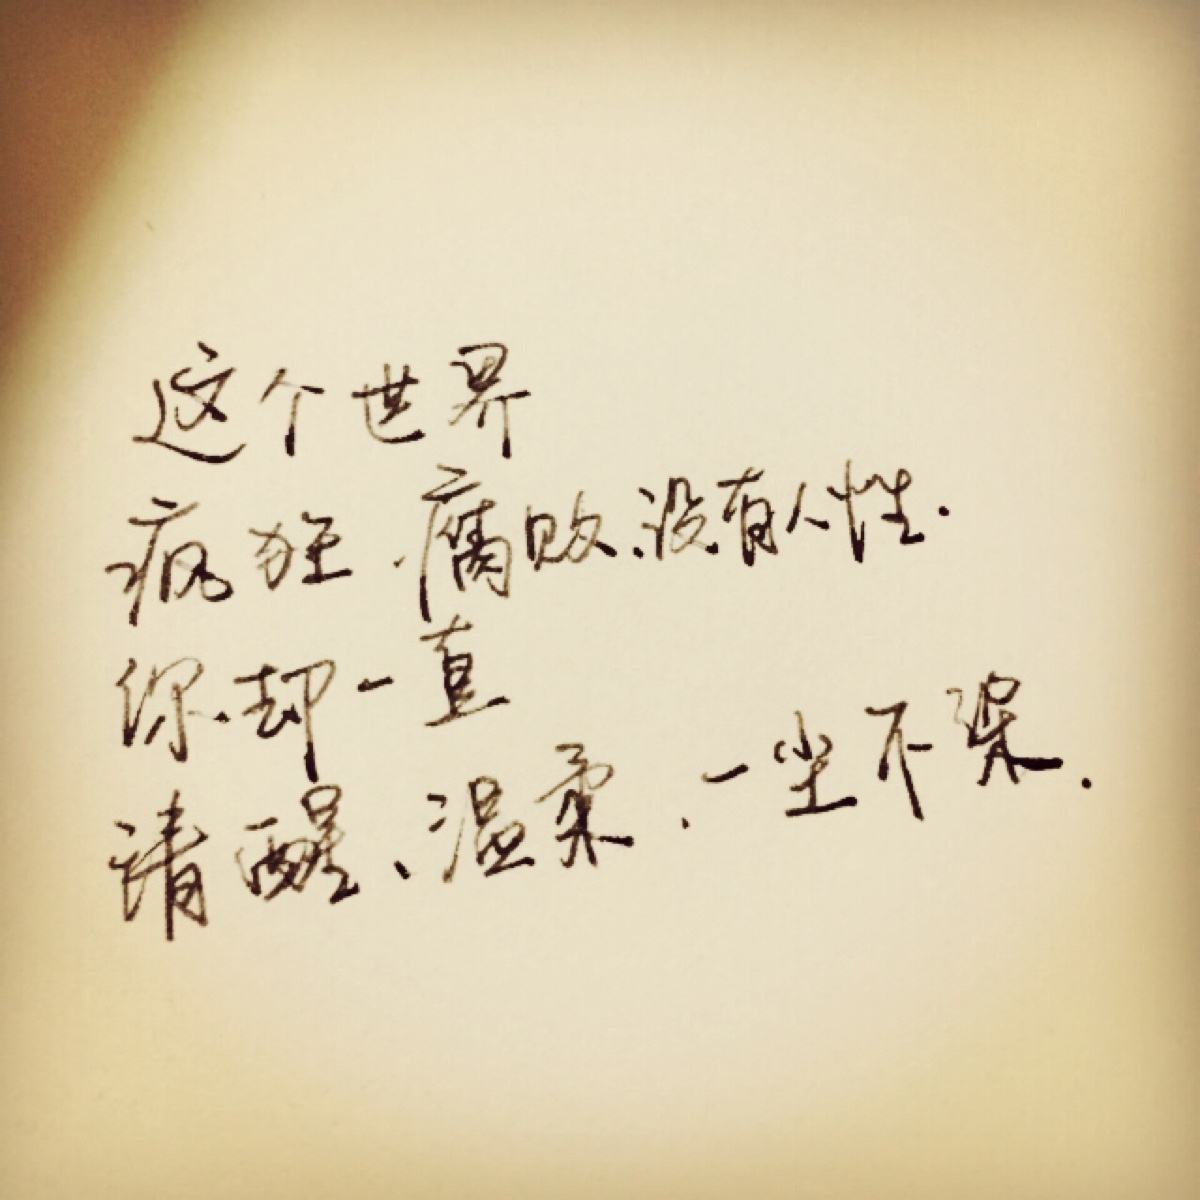 这个世界
疯狂、腐败、没有人性.
你却一直
清醒、温柔、一尘不染.